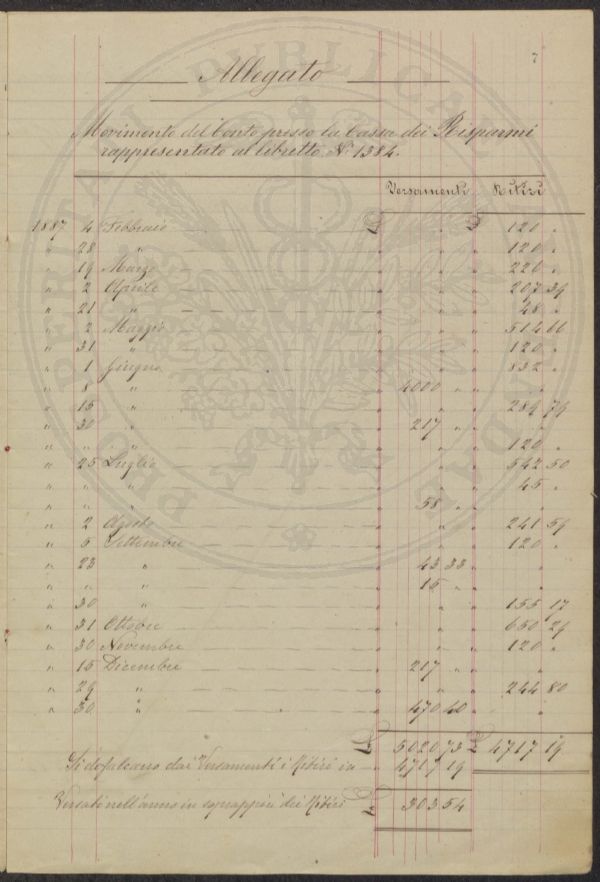 7
Allegato
Movimento del Conto presso la Cassa dei Risparmi
rappresentato al libretto No 1384.
Versamenti Ritiri
1887 4 Febbraio — £ " " £ 120 "
" 28 " — " " " " 120 "
" 19 Marzo — " " " " 220 "
" 2 Aprile — " " " " 207 39
" 21 " — " " " " 48 "
" 2 Maggio — " " " " 514 66
" 31 " — " " " " 120 "
" 1 Giugno — " " " " 832 "
" 8 " — " 4000 " " " "
" 15 " — " " " " 289 79
" 30 " — " 217 " " " "
" " " — " " " " 120 "
" 25 Luglio — " " " " 542 50
" " " — " " " " 45 "
" " " — " 58 " " " "
" 2 Agosto — " " " " 241 59
" 5 Settembre — " " " " 120 "
" 23 " — " 43 33 " " "
" " " — " 15 " " " "
" 30 " — " " " " 155 17
" 31 Ottobre — " " " " 650 29
" 30 Novembre — " " " " 120 "
" 15 Dicembre — " 217 " " " "
" 29 " — " " " " 244 80
" 30 " — " 470 40 " " "
£ 5020 73 £ 4717 19
Si defalcano dai Versamenti i Ritiri in — " 4717 19
Versati nell'anno in sopnappiù dei Ritiri £ 303 54
PROSPERITATI PUBLICAE AUGENDAE